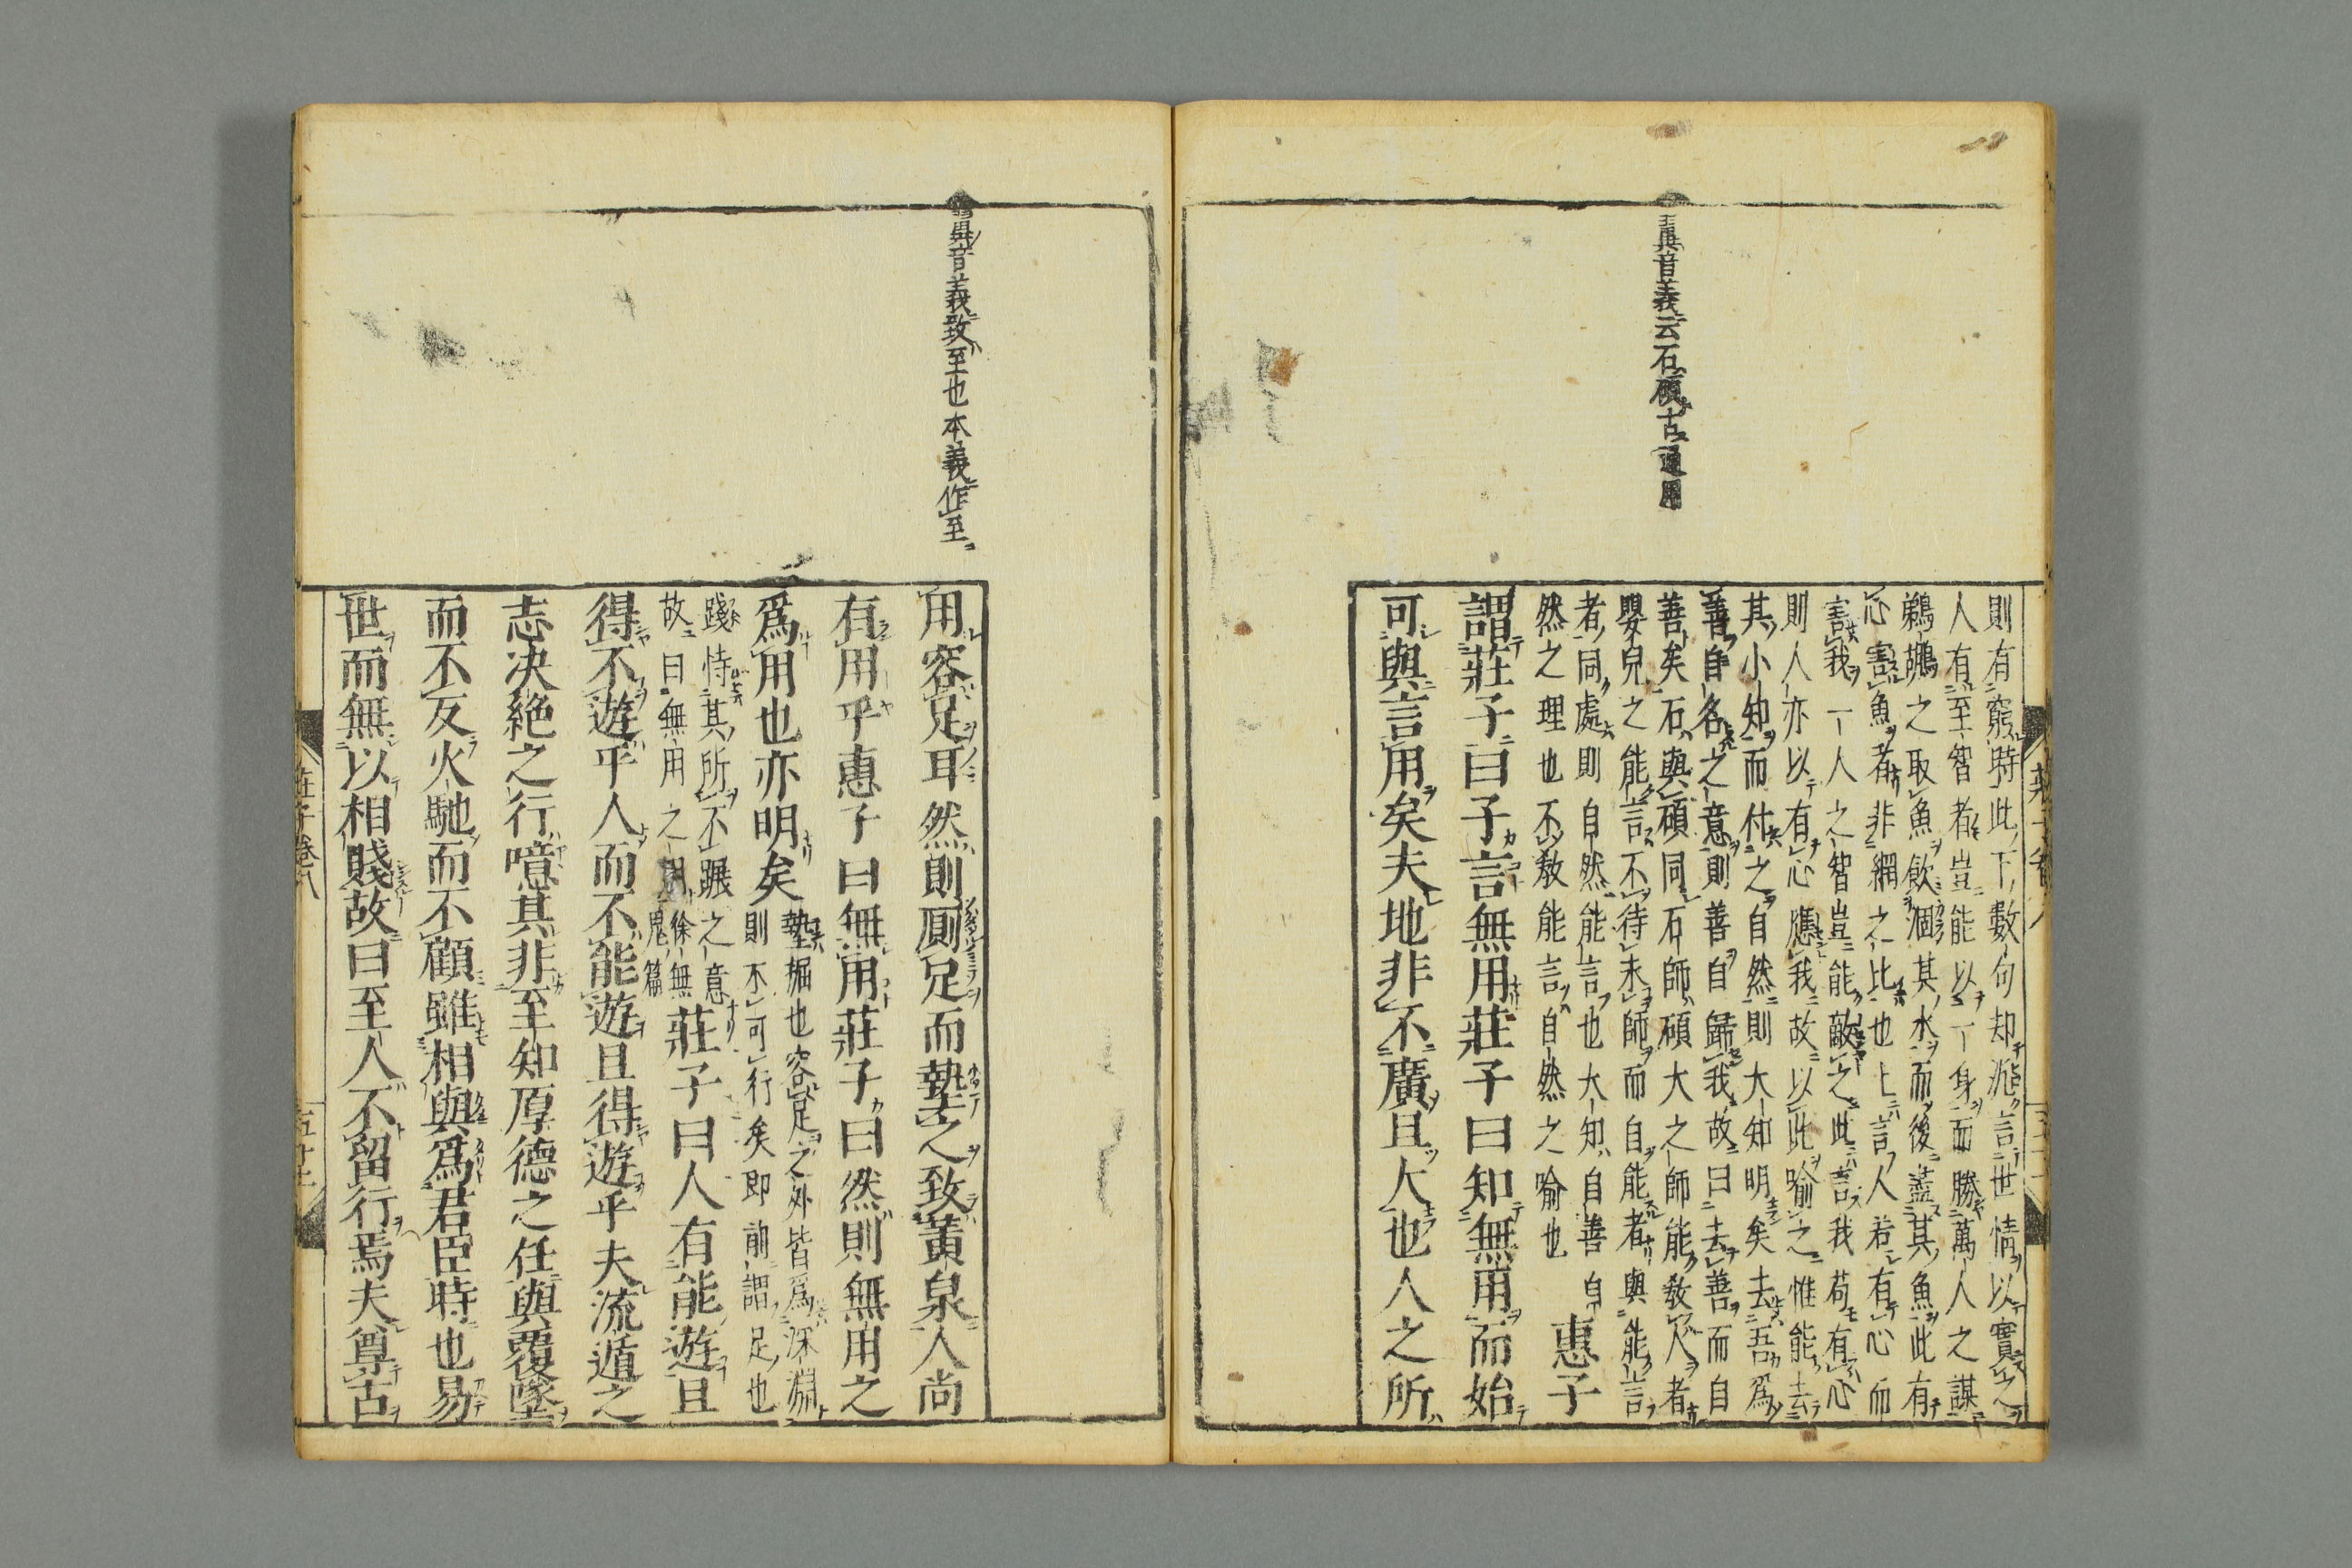 音義云石碩古通用
則有窮時此下數句却汎言世情以實之
人有至智者豈能以一身而勝萬人之謀
鵜鶘之取魚飲涸其水而後盡其魚此有
心害魚者非網之比也上言人若有心而
害我一人之智豈能敵之此言我苟有心
則人亦以有心應我故以此喻之惟能去
其小知而付之自然則大知明矣去吾爲
善自名之意則善自歸我故曰去善而自
善矣石與碩同石師碩大之師能敎人者
嬰兒之能言不待求師而自能者與能言
者同處則自然能言也大知自善自
然之理也不敎能言自然之喻也
惠子
謂莊子曰子言無用莊子曰知無用而始
可與言用矣夫地非不廣且大也人之所
音義致至也本義作至
用容足耳然則厠足而墊之致黃泉人尚
有用乎惠子曰無用莊子曰然則無用之
爲用也亦明矣
墊掘也容足之外皆爲深淵
則不可行矣即前謂足也
踐恃其所不蹍之意
故曰無用之用徐無鬼篇
莊子曰人有能遊且
得不遊乎人而不能遊且得遊乎夫流遁之
志决絶之行噫其非至知厚德之任與覆墜
而不反火馳而不顧雖相與爲君臣時也易
世而無以相賤故曰至人不留行焉夫尊古
莊子卷八